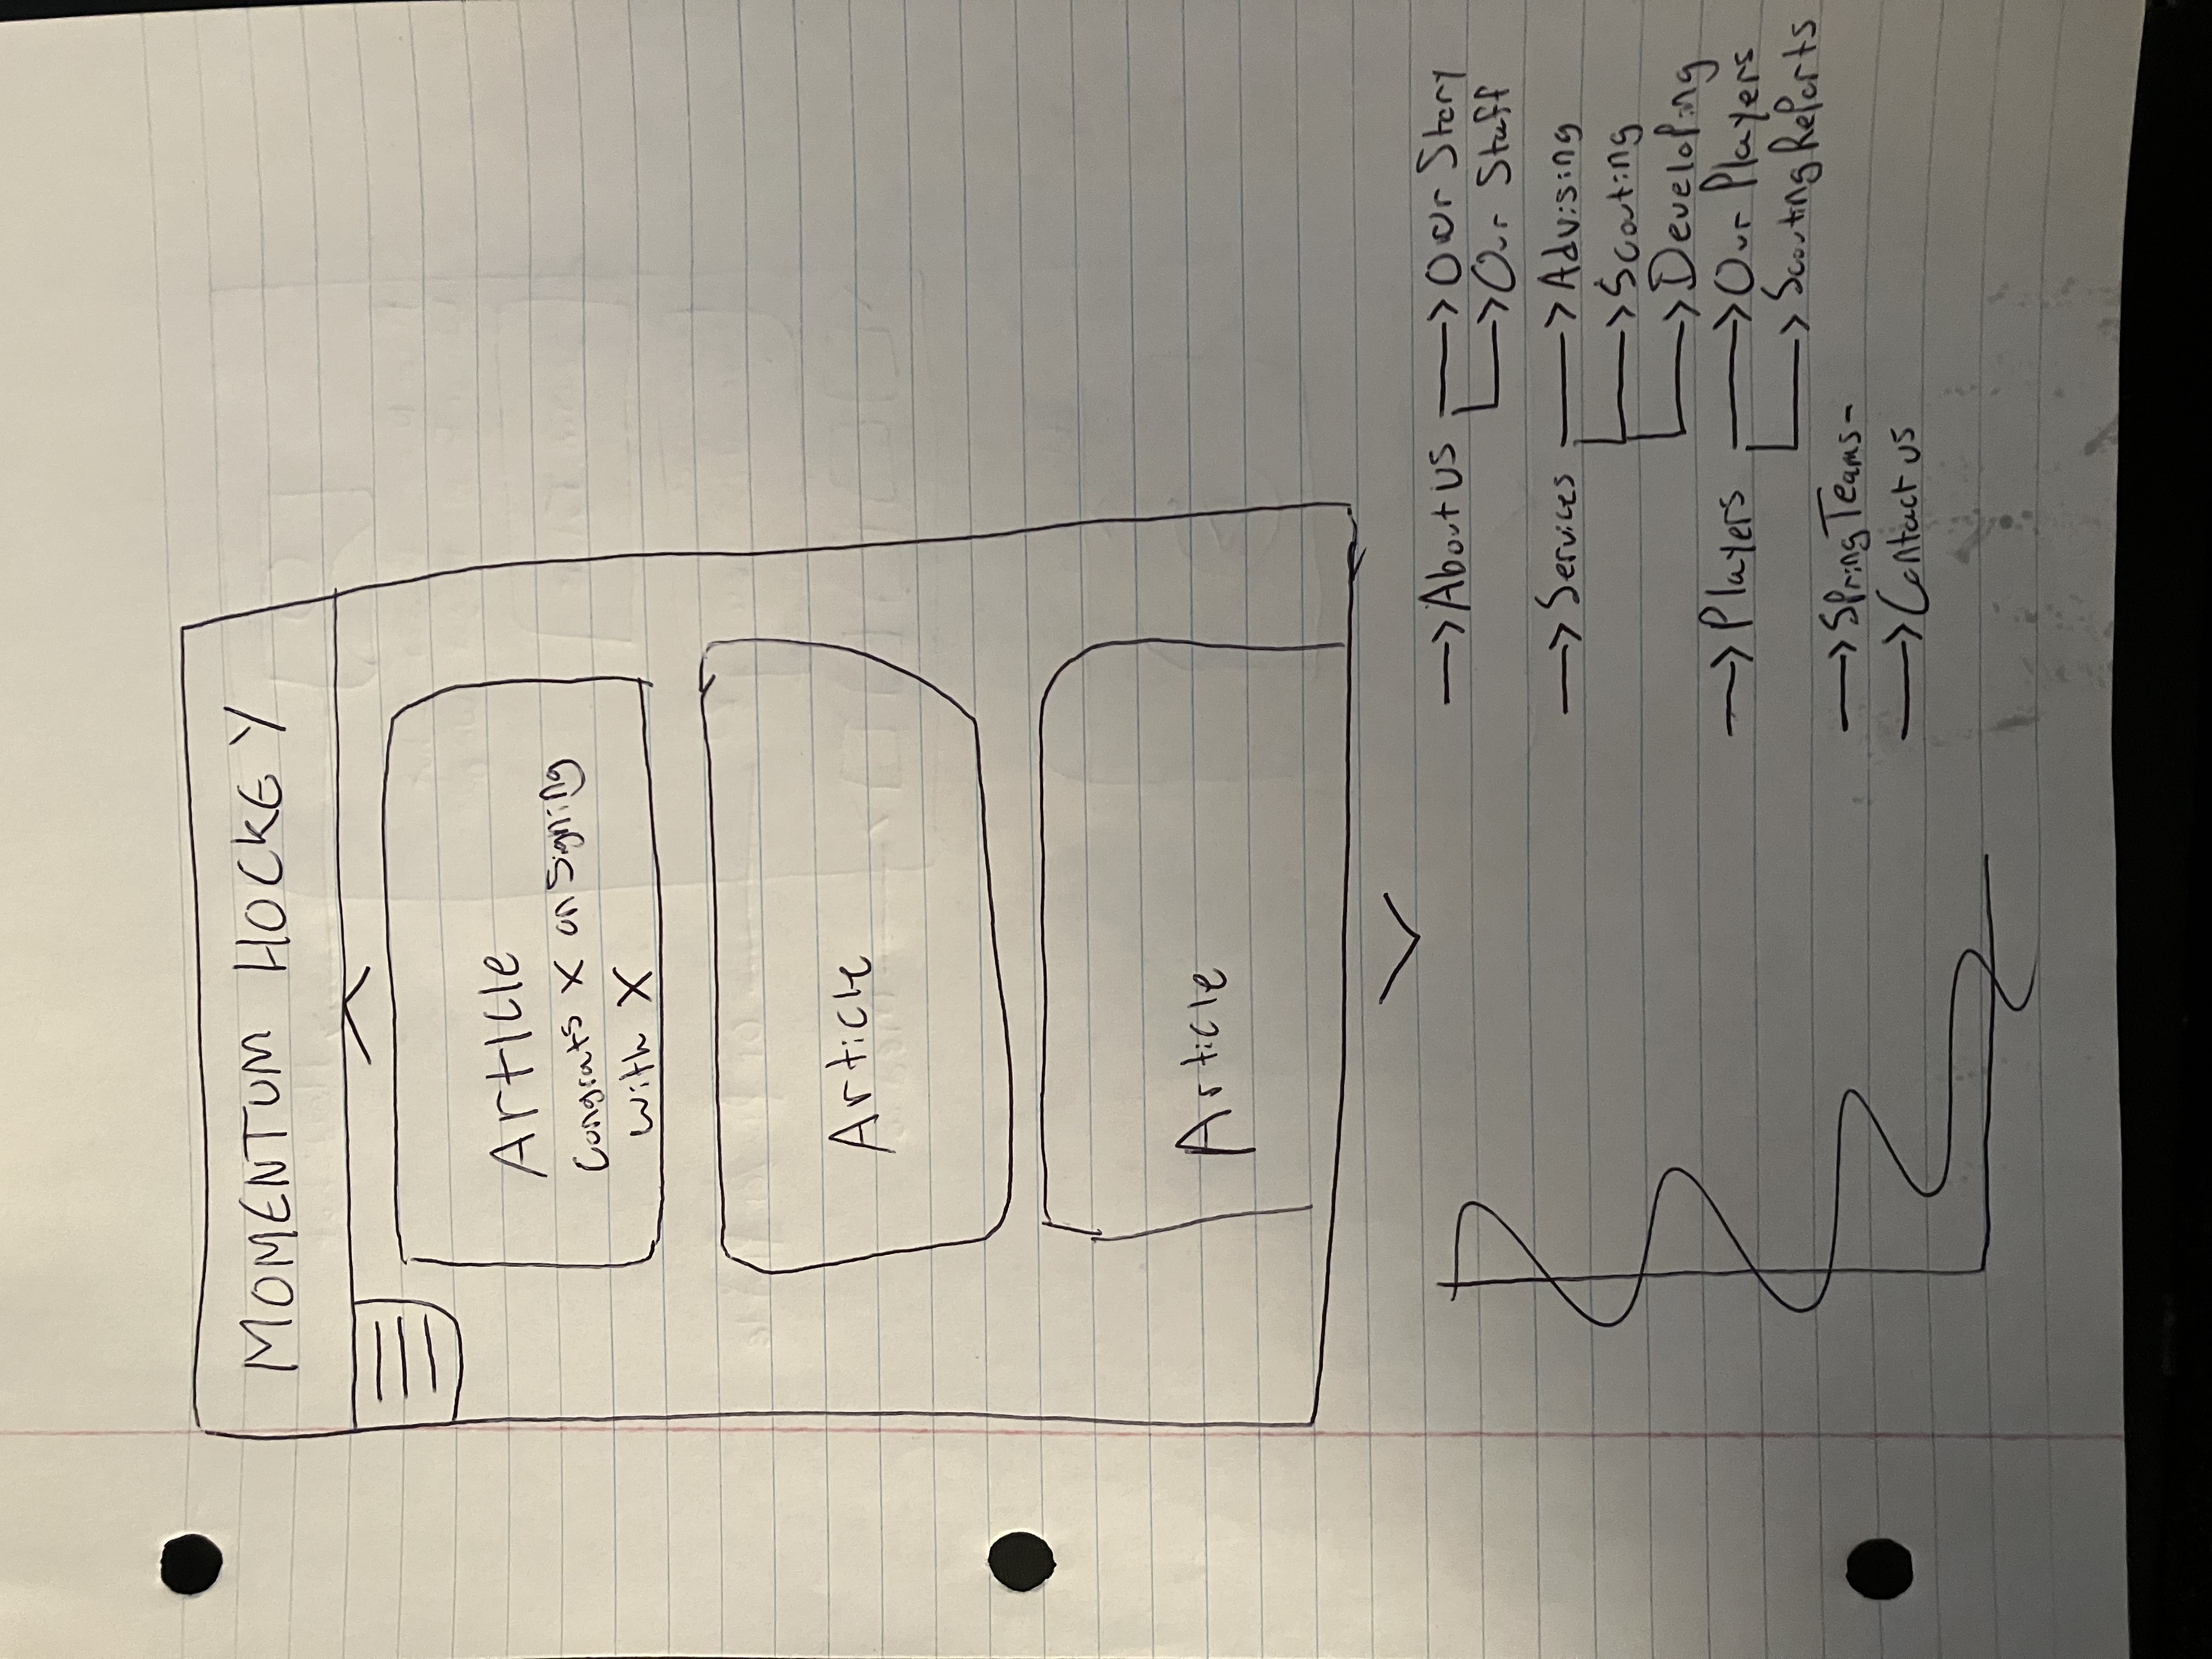 MOMENTUM HOCKEY
Article
Congrats X on Signing
with X
Article
Article
About us
Our Story
Our Staff
Services
Advising
Scouting
Developing
Players
Our Players
Scouting Reports
Spring Teams-
Contact us